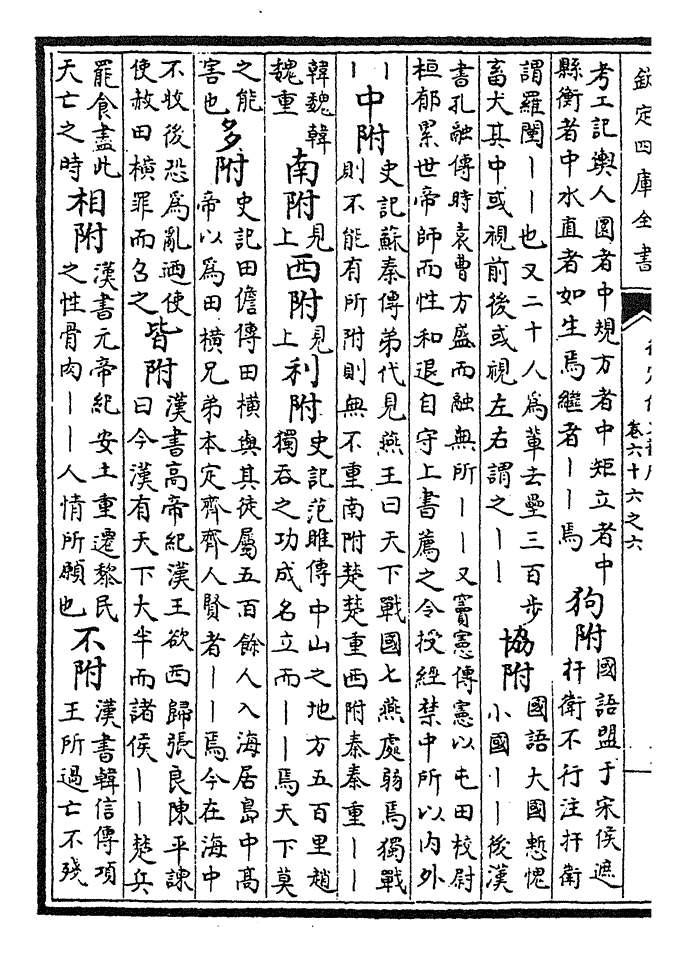 欽定四庫全書
卷六十六之六
考工記輿人圜者中規方者中矩立者中
縣衡者中水直者如生焉繼者丨丨焉
狗附
國語盟于宋侯遮
扞衛不行注扞衛
謂羅闉丨丨也又二十人為輩去壘三百步
畜犬其中或視前後或視左右謂之丨丨
協附
國語大國慙愧
小國丨丨後漢
書孔融傳時袁曹方盛而融無所丨丨又竇憲傳憲以屯田校尉
桓郁累世帝師而性和退自守上書薦之令授經禁中所以内外
丨
丨
中附
史記蘇秦傳弟代見燕王曰天下戰國七燕處弱焉獨戰
則不能有所附則無不重南附楚楚重西附秦秦重丨丨
韓魏韓
魏重
南附
見
上
西附
見
上
利附
史記范雎傳中山之地方五百里趙
獨吞之功成名立而丨丨焉天下莫
之能
害也
多附
史記田儋傳田橫與其徒屬五百餘人入海居島中髙
帝以為田橫兄弟本定齊齊人賢者丨丨焉今在海中
不收後恐為亂迺使
使赦田橫罪而召之
皆附
漢書高帝紀漢王欲西歸張良陳平諫
曰今漢有天下大半而諸侯丨丨楚兵
罷食盡此
天亡之時
相附
漢書元帝紀安土重遷黎民
之性骨肉丨丨人情所願也
不附
漢書韓信傳項
王所過亡不殘